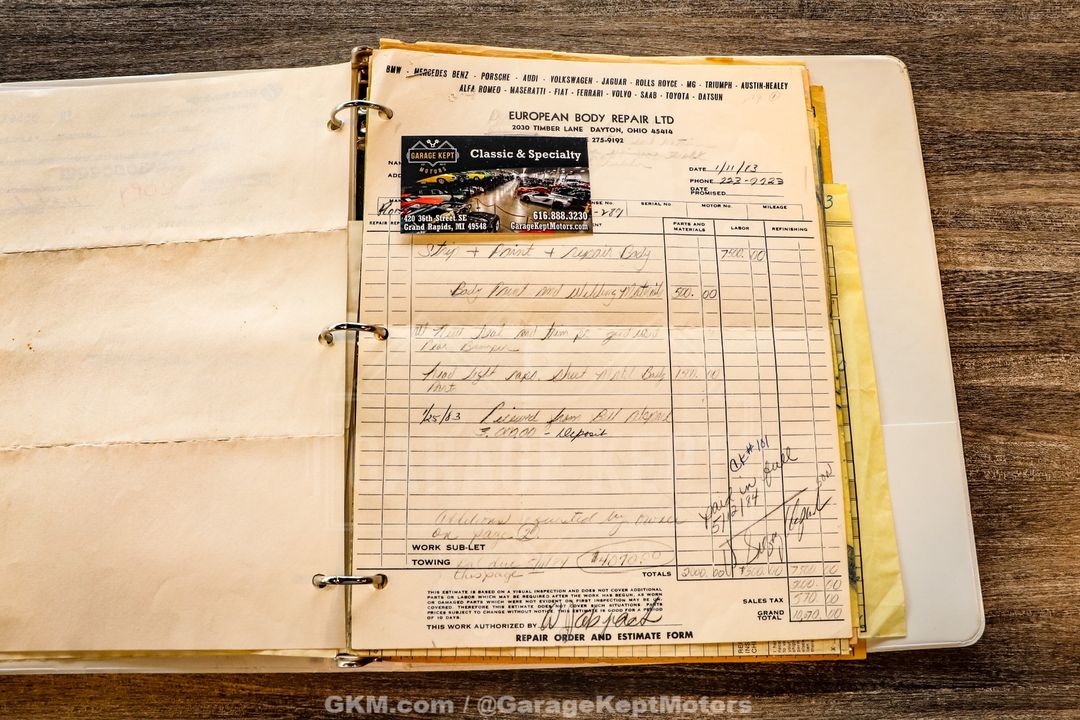 BMW - MERCEDES BENZ - PORSCHE - AUDI - VOLKSWAGEN - JAGUAR - ROLLS ROYCE - MG - TRIUMPH - AUSTIN-HEALEY
ALFA ROMEO - MASERATTI - FIAT - FERRARI - VOLVO - SAAB - TOYOTA - DATSUN
EUROPEAN BODY REPAIR LTD
2030 TIMBER LANE DAYTON, OHIO 45414
275-9192
GARAGE KEPT
MOTORS
Classic & Specialty
420 36th Street SE
Grand Rapids, MI 49548
616.888.3230
GarageKeptMotors.com
DATE 1/11/83
PHONE 223-9723
DATE
PROMISED
SERIAL No. MOTOR No. MILEAGE
PARTS AND
MATERIALS LABOR REFINISHING
Strip + Paint + repair Body 7500.00
Body Paint and Welding Material 500.00
Rear Bumper
Head light Sheet Metal Body 1500.00
Paint
1/25/83 Received from Bill
3,000.00 - Deposit
CK # 101
Paid in full
5/12/84
Additions by owner
on page 2
WORK SUB-LET
TOWING $4070.00
this page
TOTALS 2000.00 7500.00 7500.00
2000.00
SALES TAX 570.00
GRAND
TOTAL 10,070.00
THIS ESTIMATE IS BASED ON A VISUAL INSPECTION AND DOES NOT COVER ADDITIONAL
PARTS OR LABOR WHICH MAY BE REQUIRED AFTER THE WORK HAS BEGUN, AS WORN
OR DAMAGED PARTS WHICH WERE NOT EVIDENT ON FIRST INSPECTION MAY BE DIS-
COVERED. THEREFORE THIS ESTIMATE DOES NOT COVER SUCH SITUATIONS. PARTS
PRICES SUBJECT TO CHANGE WITHOUT NOTICE. THIS ESTIMATE IS GOOD FOR A PERIOD
OF 10 DAYS.
THIS WORK AUTHORIZED BY
REPAIR ORDER AND ESTIMATE FORM
GKM.com / @GarageKeptMotors